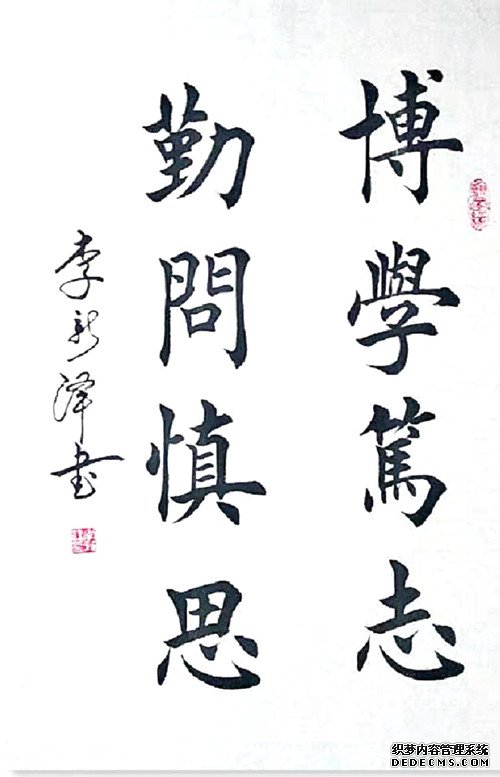 博學篤志
勤問慎思
李新澤书
织梦内容管理系统
DEDECMS.COM